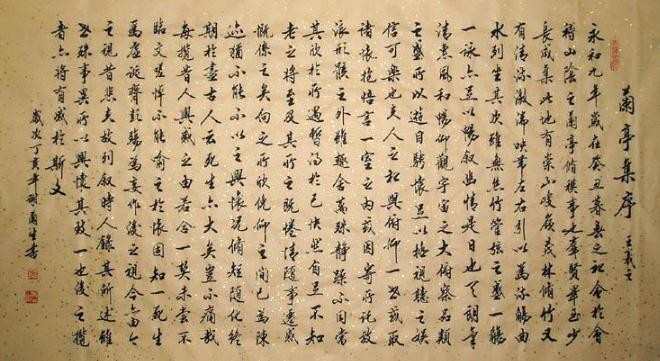 蘭亭集序
王羲之
永和九年歲在癸丑暮春之初會於會
稽山陰之蘭亭脩禊事也羣賢畢至少
長咸集此地有崇山峻嶺茂林脩竹又
有清流激湍映帶左右引以為流觴曲
水列坐其次雖無絲竹管弦之盛一觴
一詠亦足以暢敘幽情是日也天朗氣
清惠風和暢仰觀宇宙之大俯察品類
之盛所以遊目騁懷足以極視聽之娛
信可樂也夫人之相與俯仰一世或取
諸懷抱悟言一室之內或因寄所託放
浪形骸之外雖趣舍萬殊靜躁不同當
其欣於所遇暫得於己快然自足不知
老之將至及其所之既惓情隨事遷感
慨係之矣向之所欣俛仰之間已為陳
迹猶不能不以之興懷況脩短隨化終
期於盡古人云死生亦大矣豈不痛哉
每攬昔人興感之由若合一契未嘗不
臨文嗟悼不能喻之於懷固知一死生
為虛誕齊彭殤為妄作後之視今亦由今
之視昔悲夫故列敘時人錄其所述雖
世殊事異所以興懷其致一也後之攬
者亦將有感於斯文
歲次丁亥年